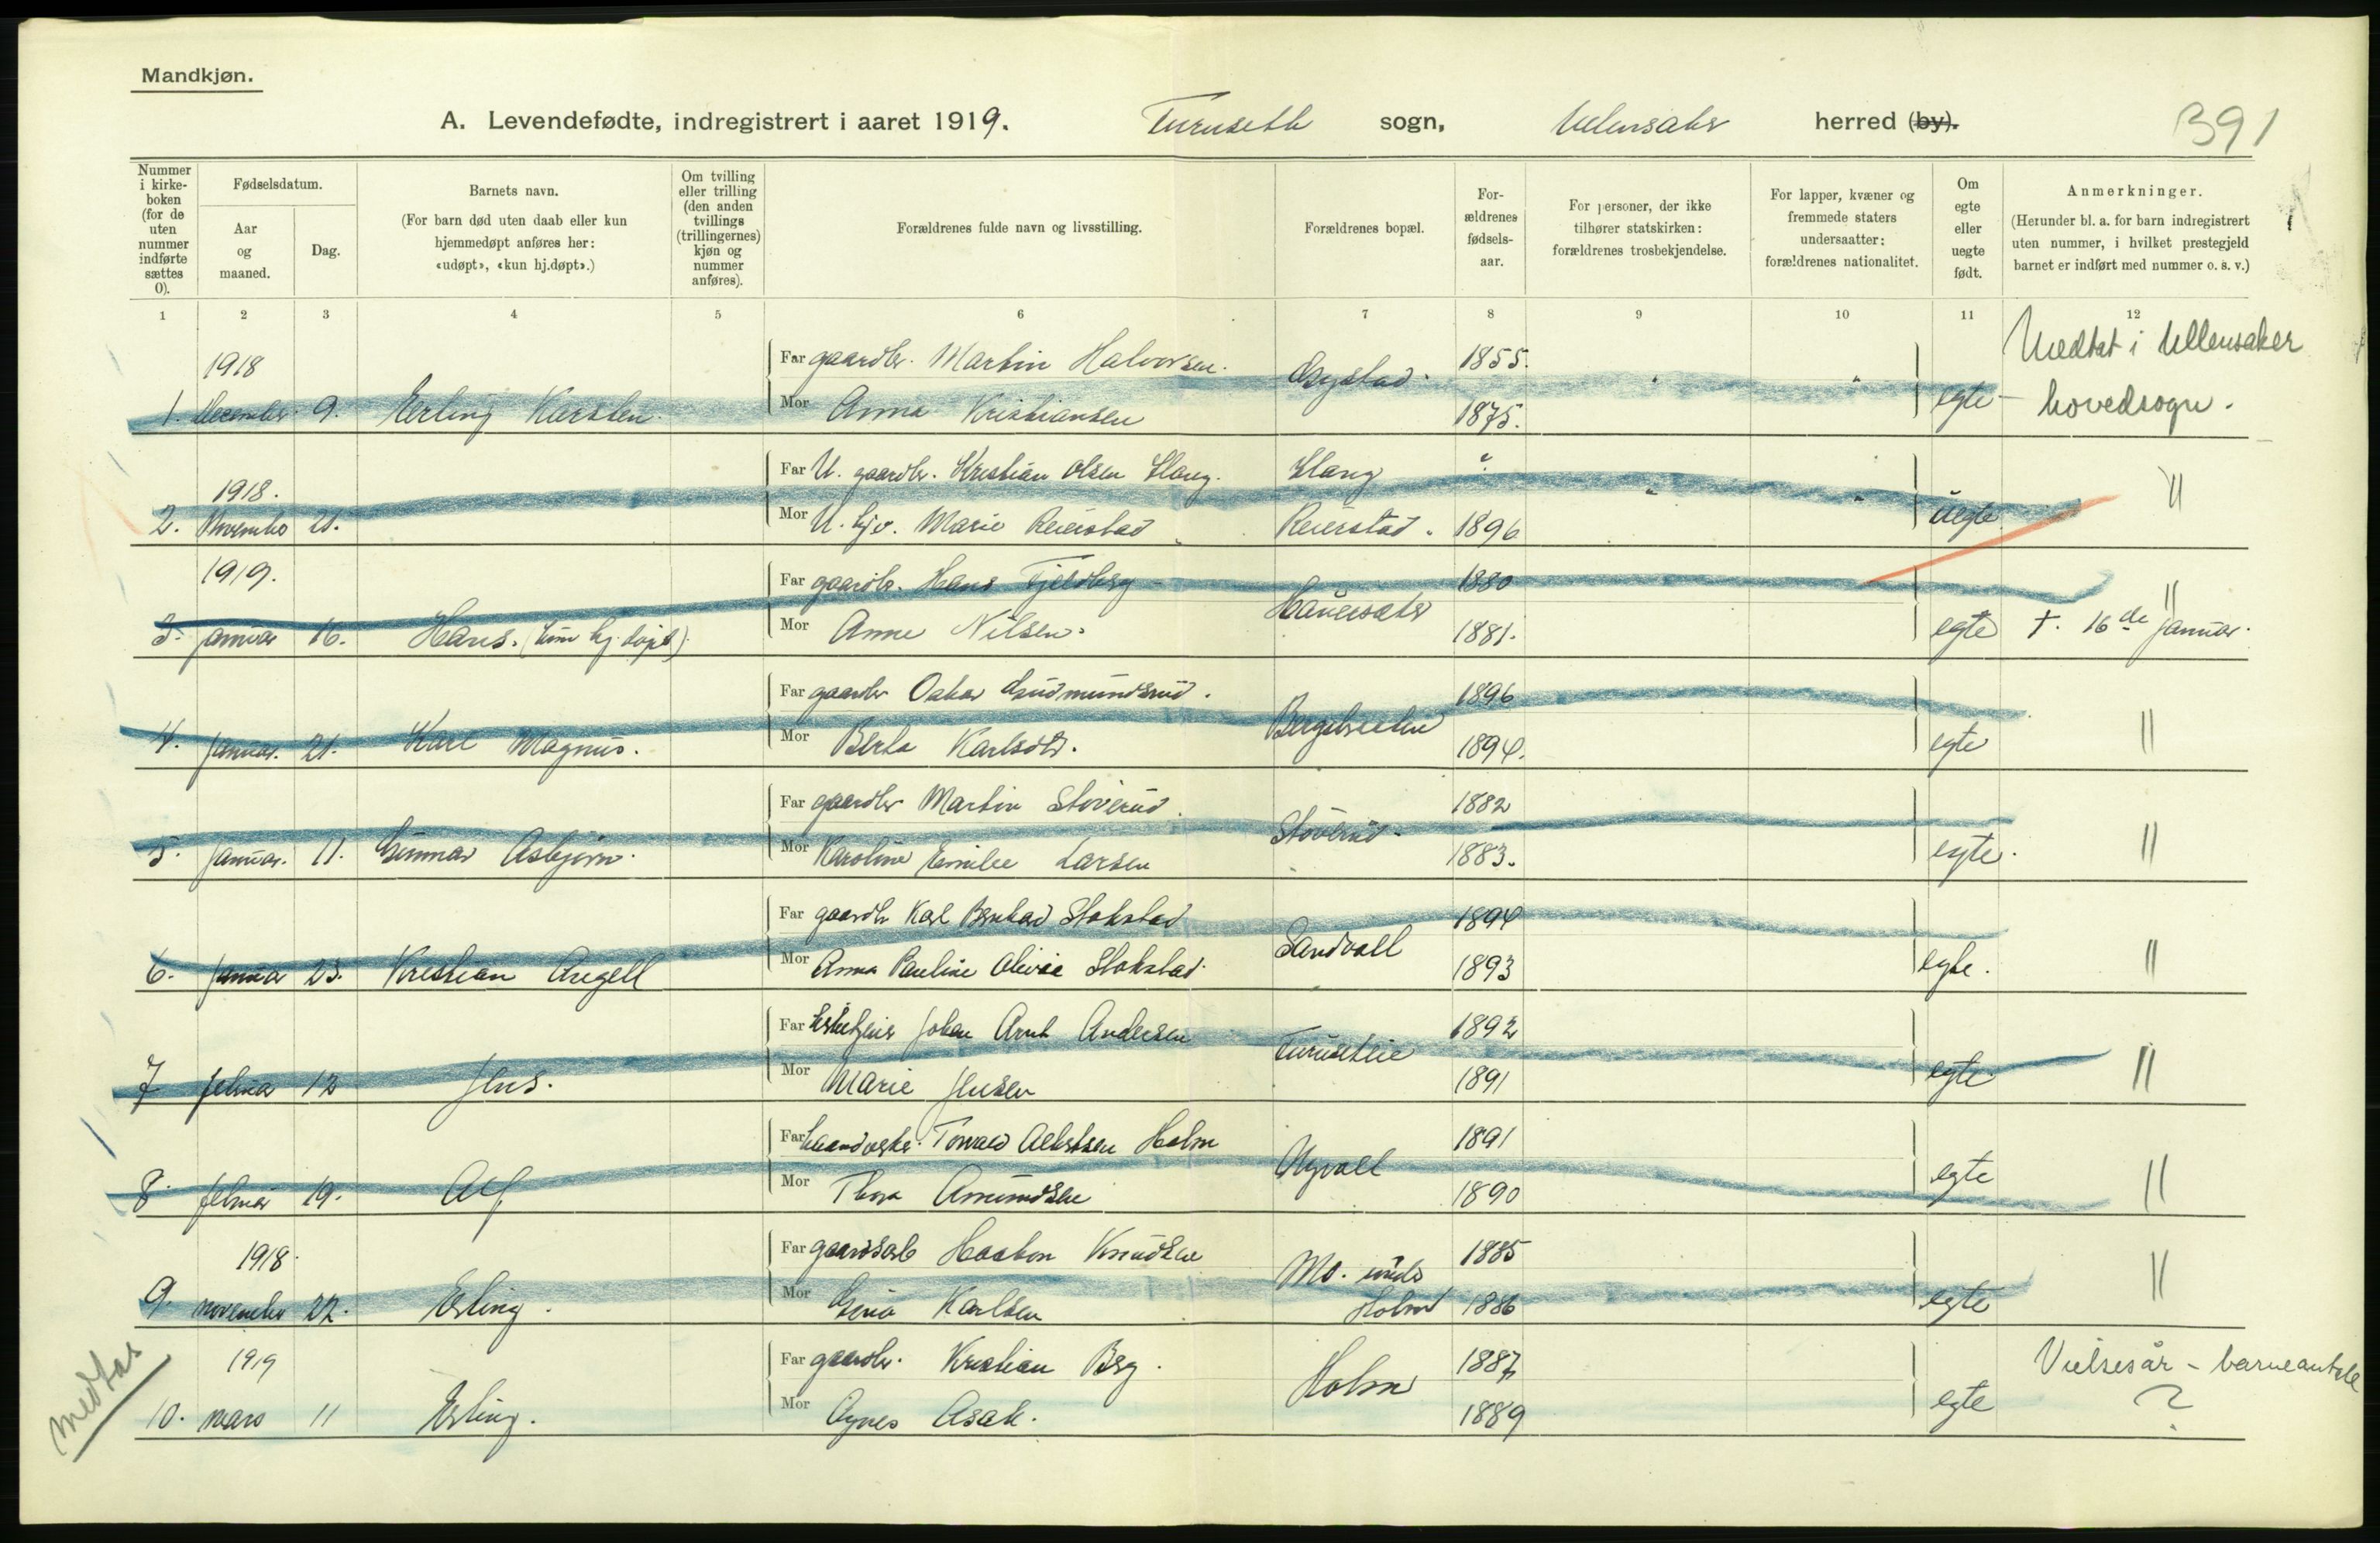 Mandkjøn.
A. Levendefødte, indregistrert i aaret 1919. Furuseth sogn, Ullensaker herred (by).
391
Nummer i kirke-boken (for de uten nummer indførte sættes 0).
Fødselsdatum.
Aar og maaned.
Dag.
Barnets navn.
(For barn død uten daab eller kun hjemmedøpt anføres her: «udøpt», «kun hj.døpt».)
Om tvilling eller trilling (den anden tvillings (trillingernes) kjøn og nummer anføres).
Forældrenes fulde navn og livsstilling.
Forældrenes bopæl.
For-ældrenes fødsels-aar.
For personer, der ikke tilhører statskirken: forældrenes trosbekjendelse.
For lapper, kvæner og fremmede staters undersaatter: forældrenes nationalitet.
Om egte eller uegte født.
Anmerkninger.
(Herunder bl. a. for barn indregistrert uten nummer, i hvilket prestegjeld barnet er indført med nummer o. s. v.)
1 2 3 4 5 6 7 8 9 10 11 12
1918 Far gaardbr. Martin Halvorsen. Gystad. 1855. Medtat i Ullensaker
1. December 9. Erling Karsten. Mor Anna Kristiansen 1875. egte hovedsogn.
1918. Far U. gaardbr. Kristian Olsen Haug. Haug "
2. November 21. Mor U. Marie Reierstad Reierstad. 1896 uegte "
1919. Far gaardbr. Hans Fjeldberg 1880 "
3. januar 16. Hans. (kun hj. døpt). Mor Anne Nilsen. 1881. egte †. 16de januar.
Far gaardbr Oskar Gudmundsrud. 1896
4. januar. 21. Karl Magnus. Mor Berta Karlsdtr. 1894. egte "
Far gaardbr Martin Støverud. Støverud. 1882
5. januar. 11. Gunnar Asbjørn. Mor Karoline Emilie Larsen 1883. egte. "
Far gaardbr Karl Bernhard Stokstad Sandvoll 1894
6. januar 23. Kristian Angell Mor Anna Pauline Olivie Stokstad. 1893 egte. "
Far Johan Arnt Andersen 1892
7 februar 12 Jens. Mor Marie Jensen 1891 egte. "
Far haandverker Torvald Albertsen Holm Nyvoll 1891
8 februar 19. Alf Mor Thora Amundsen 1890 egte "
1918. Far gaardsarb Haakon Knudsen Mo. under 1885
9. november 22. Erling. Mor Gina Karlsen Holm 1886 egte "
1919 Far gaardbr. Kristian Berg. Holm 1887 Vielsesår - barneantall
10. mars 11 Erling. Mor Agnes Asak. 1889 egte ?
medtas